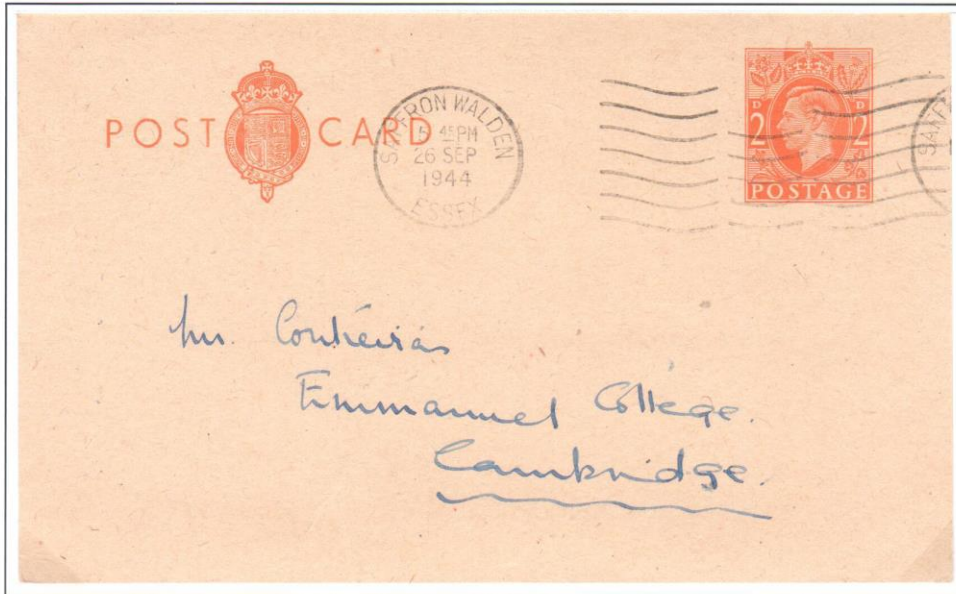 POST CARD
SAFFRON WALDEN
5 45PM
26 SEP
1944
ESSEX
D D
2 2
POSTAGE
SAFF
Mr.
Emmanuel College.
Cambridge.